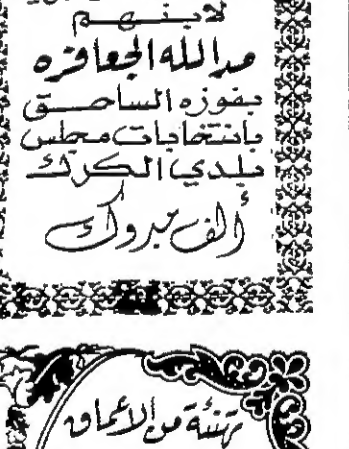 لابنهم
مدالله الجعافره
بفوزه الساحق
بانتخابات مجلس
بلدي الكرك
ألف مبروك
تهنئة من الأعماق